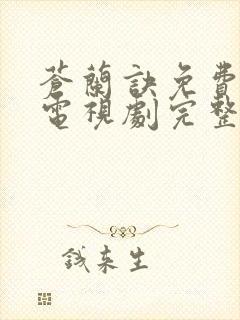 蒼蘭訣免費
電視劇完整
錢來生